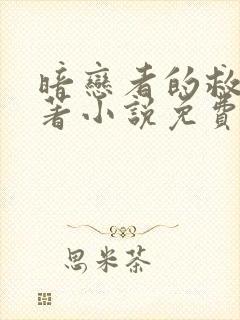 暗戀者的救
著小説免費
思米茶